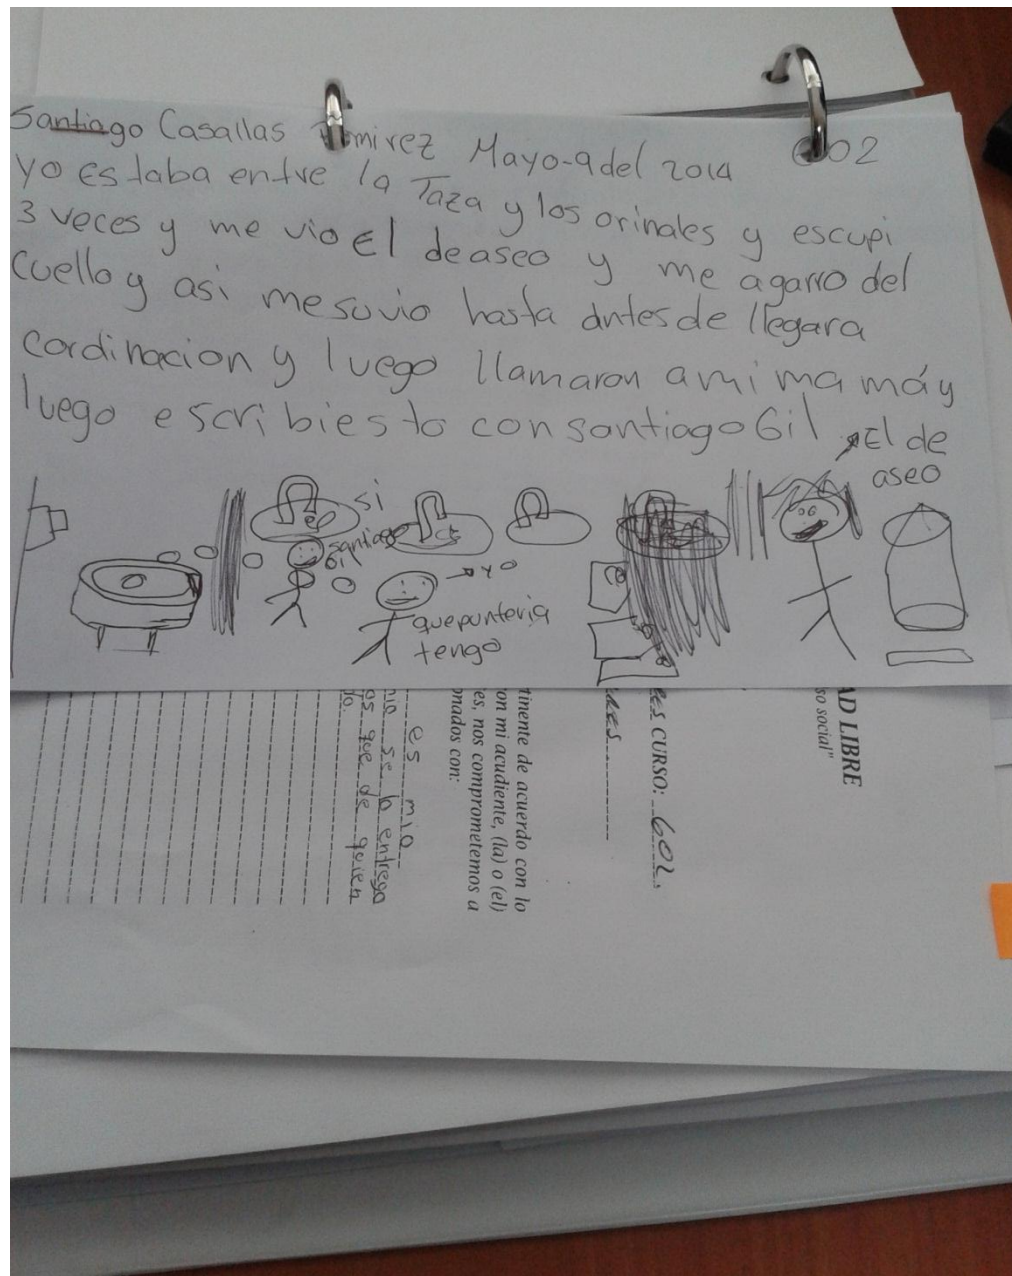 Santiago Casallas Ramirez Mayo-9del 2014 602
Yo Estaba entre la Taza y los orinales y escupi
3 veces y me vio El deaseo y me agarro del
Cuello y asi mesuvio hasta antes de llegara
Cordinacion y luego llamaron a mi mamá y
luego escribiesto con santiago Gil
El de
aseo
si
santiago
Gil
yo
quepunteria
tengo
AD LIBRE
so social"
es CURSO: 602.
des
tinente de acuerdo con lo
on mi acudiente, (la) o (el)
es, nos comprometemos a
onados con:
es mio
no se lo entrega
as que de quien